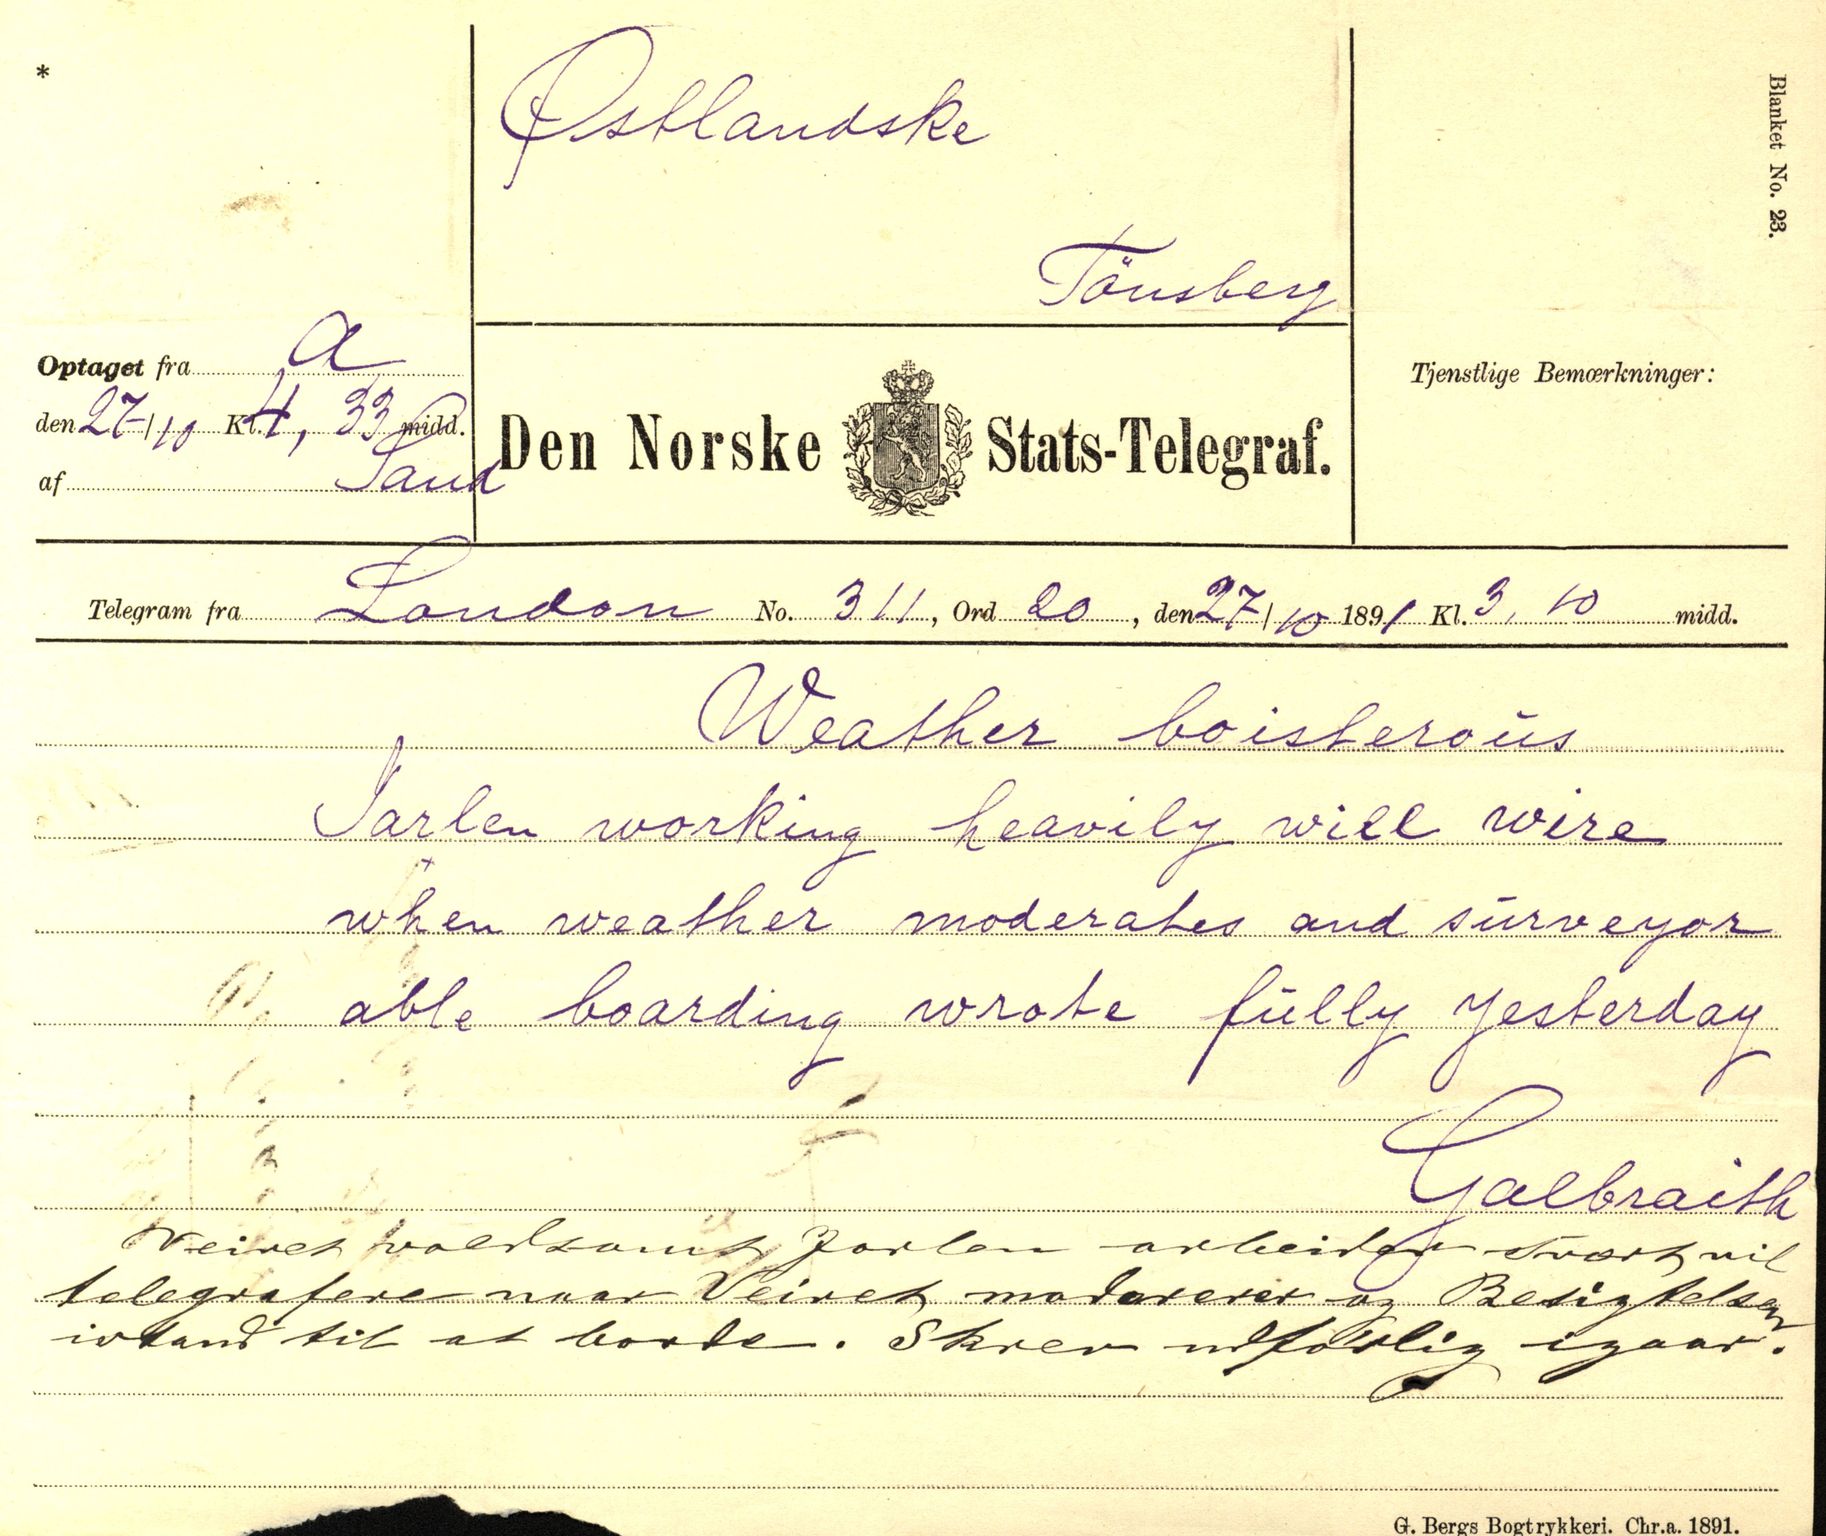 *
Østlandske
Blanket No. 23.
Tönsberg
Optaget fra A
den 27/10 Kl. 4, 33 midd.
af Sand
Den Norske Stats-Telegraf.
Tjenstlige Bemærkninger:
Telegram fra London No. 311, Ord 20, den 27/10 1891 Kl. 3, 10 midd.
Weather boisteroŭs
Jarlen working heavily will wire
when weather moderates and sŭrveyor
able boarding wrote fŭlly yesterday
Galbraith
Veiret voldsomt Jarlen arbeider svært vil
telegrafere naar Veiret modererer og Besigtelsen
istand til at borde. Skrev udførlig igaar.
G. Bergs Bogtrykkeri. Chr.a. 1891.